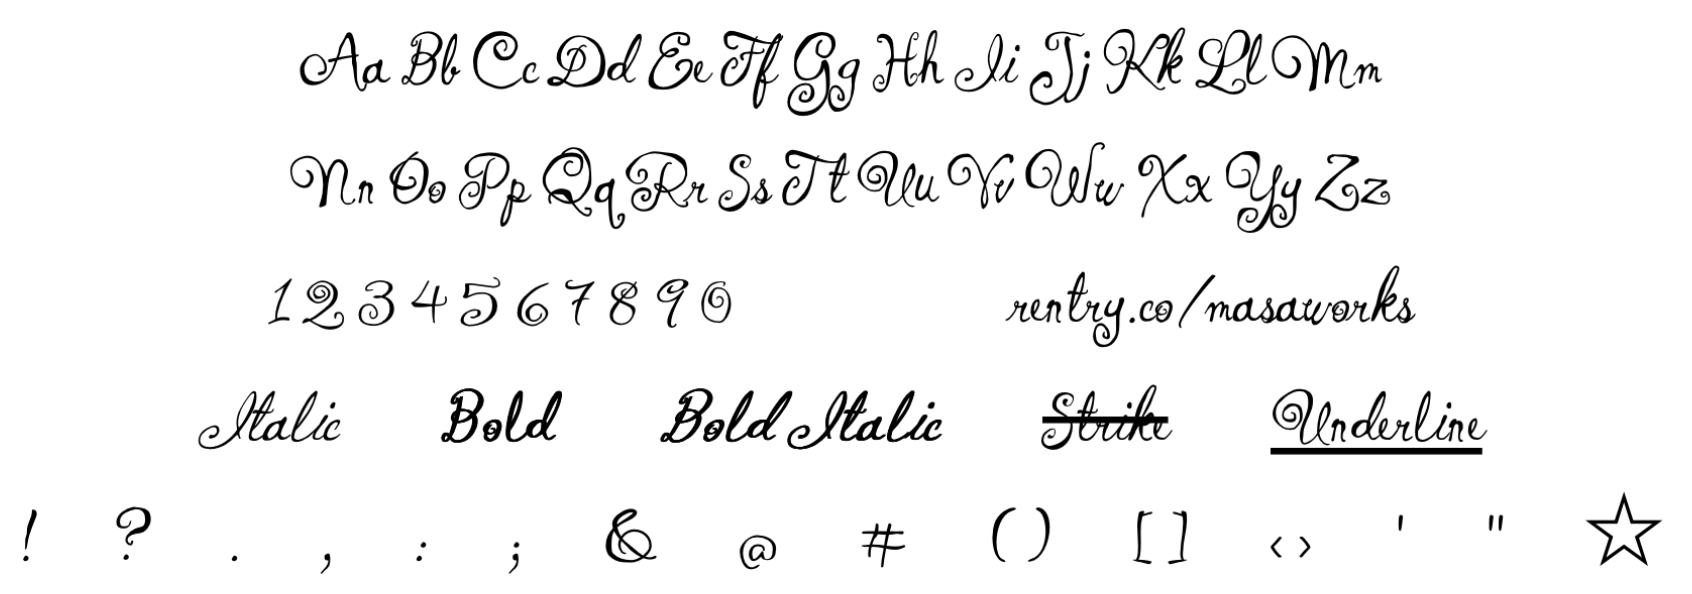 Aa Bb Cc Dd Ee Ff Gg Hh Ii Jj Kk Ll Mm
Nn Oo Pp Qq Rr Ss Tt Uu Vv Ww Xx Yy Zz
1 2 3 4 5 6 7 8 9 0 rentry.co/masaworks
Italic Bold Bold Italic Strike Underline
! ? . , : ; & @ # ( ) [ ] < > ' " ☆